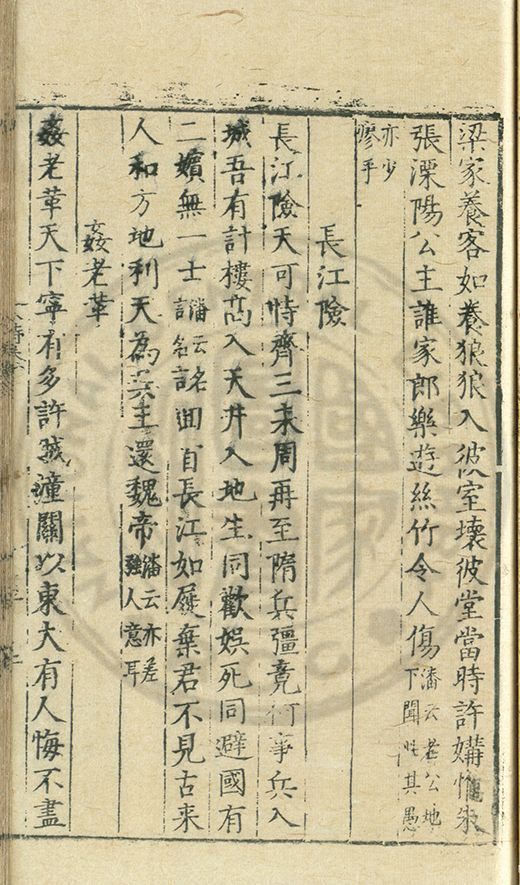 梁家養客如養狼狼入彼室壞彼堂當時許媾惟朱
張溧陽公主誰家郎樂遊絲竹令人傷潘云老公地下聞此其愚
亦少瘳乎
長江險
長江險天可恃齊三來周再至隋兵彊竟何事兵入
城吾有計樓高入天井入地生同歡娛死同避國有
二嬪無一士潘云名語名語回首長江如屣棄君不見古來
人和方地利天為兵主還魏帝潘云亦差強人意耳
姦老革
姦老革天下寧有多許賊潼關以東大有人悔不盡